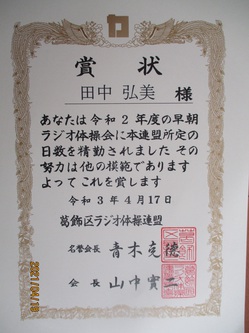 賞状
田中 弘美 様
あなたは令和2年度の早朝
ラジオ体操会に本連盟所定の
日数を精勤されました その
努力は他の模範であります
よって これを賞します
令和3年4月17日
葛飾区ラジオ体操連盟
名誉会長 青木克德
会長 山中實二
2021/04/18